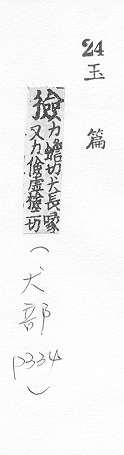 24 玉篇
獫力瞻切犬長喙
又力儉虛檢二切
(犬部 P334)